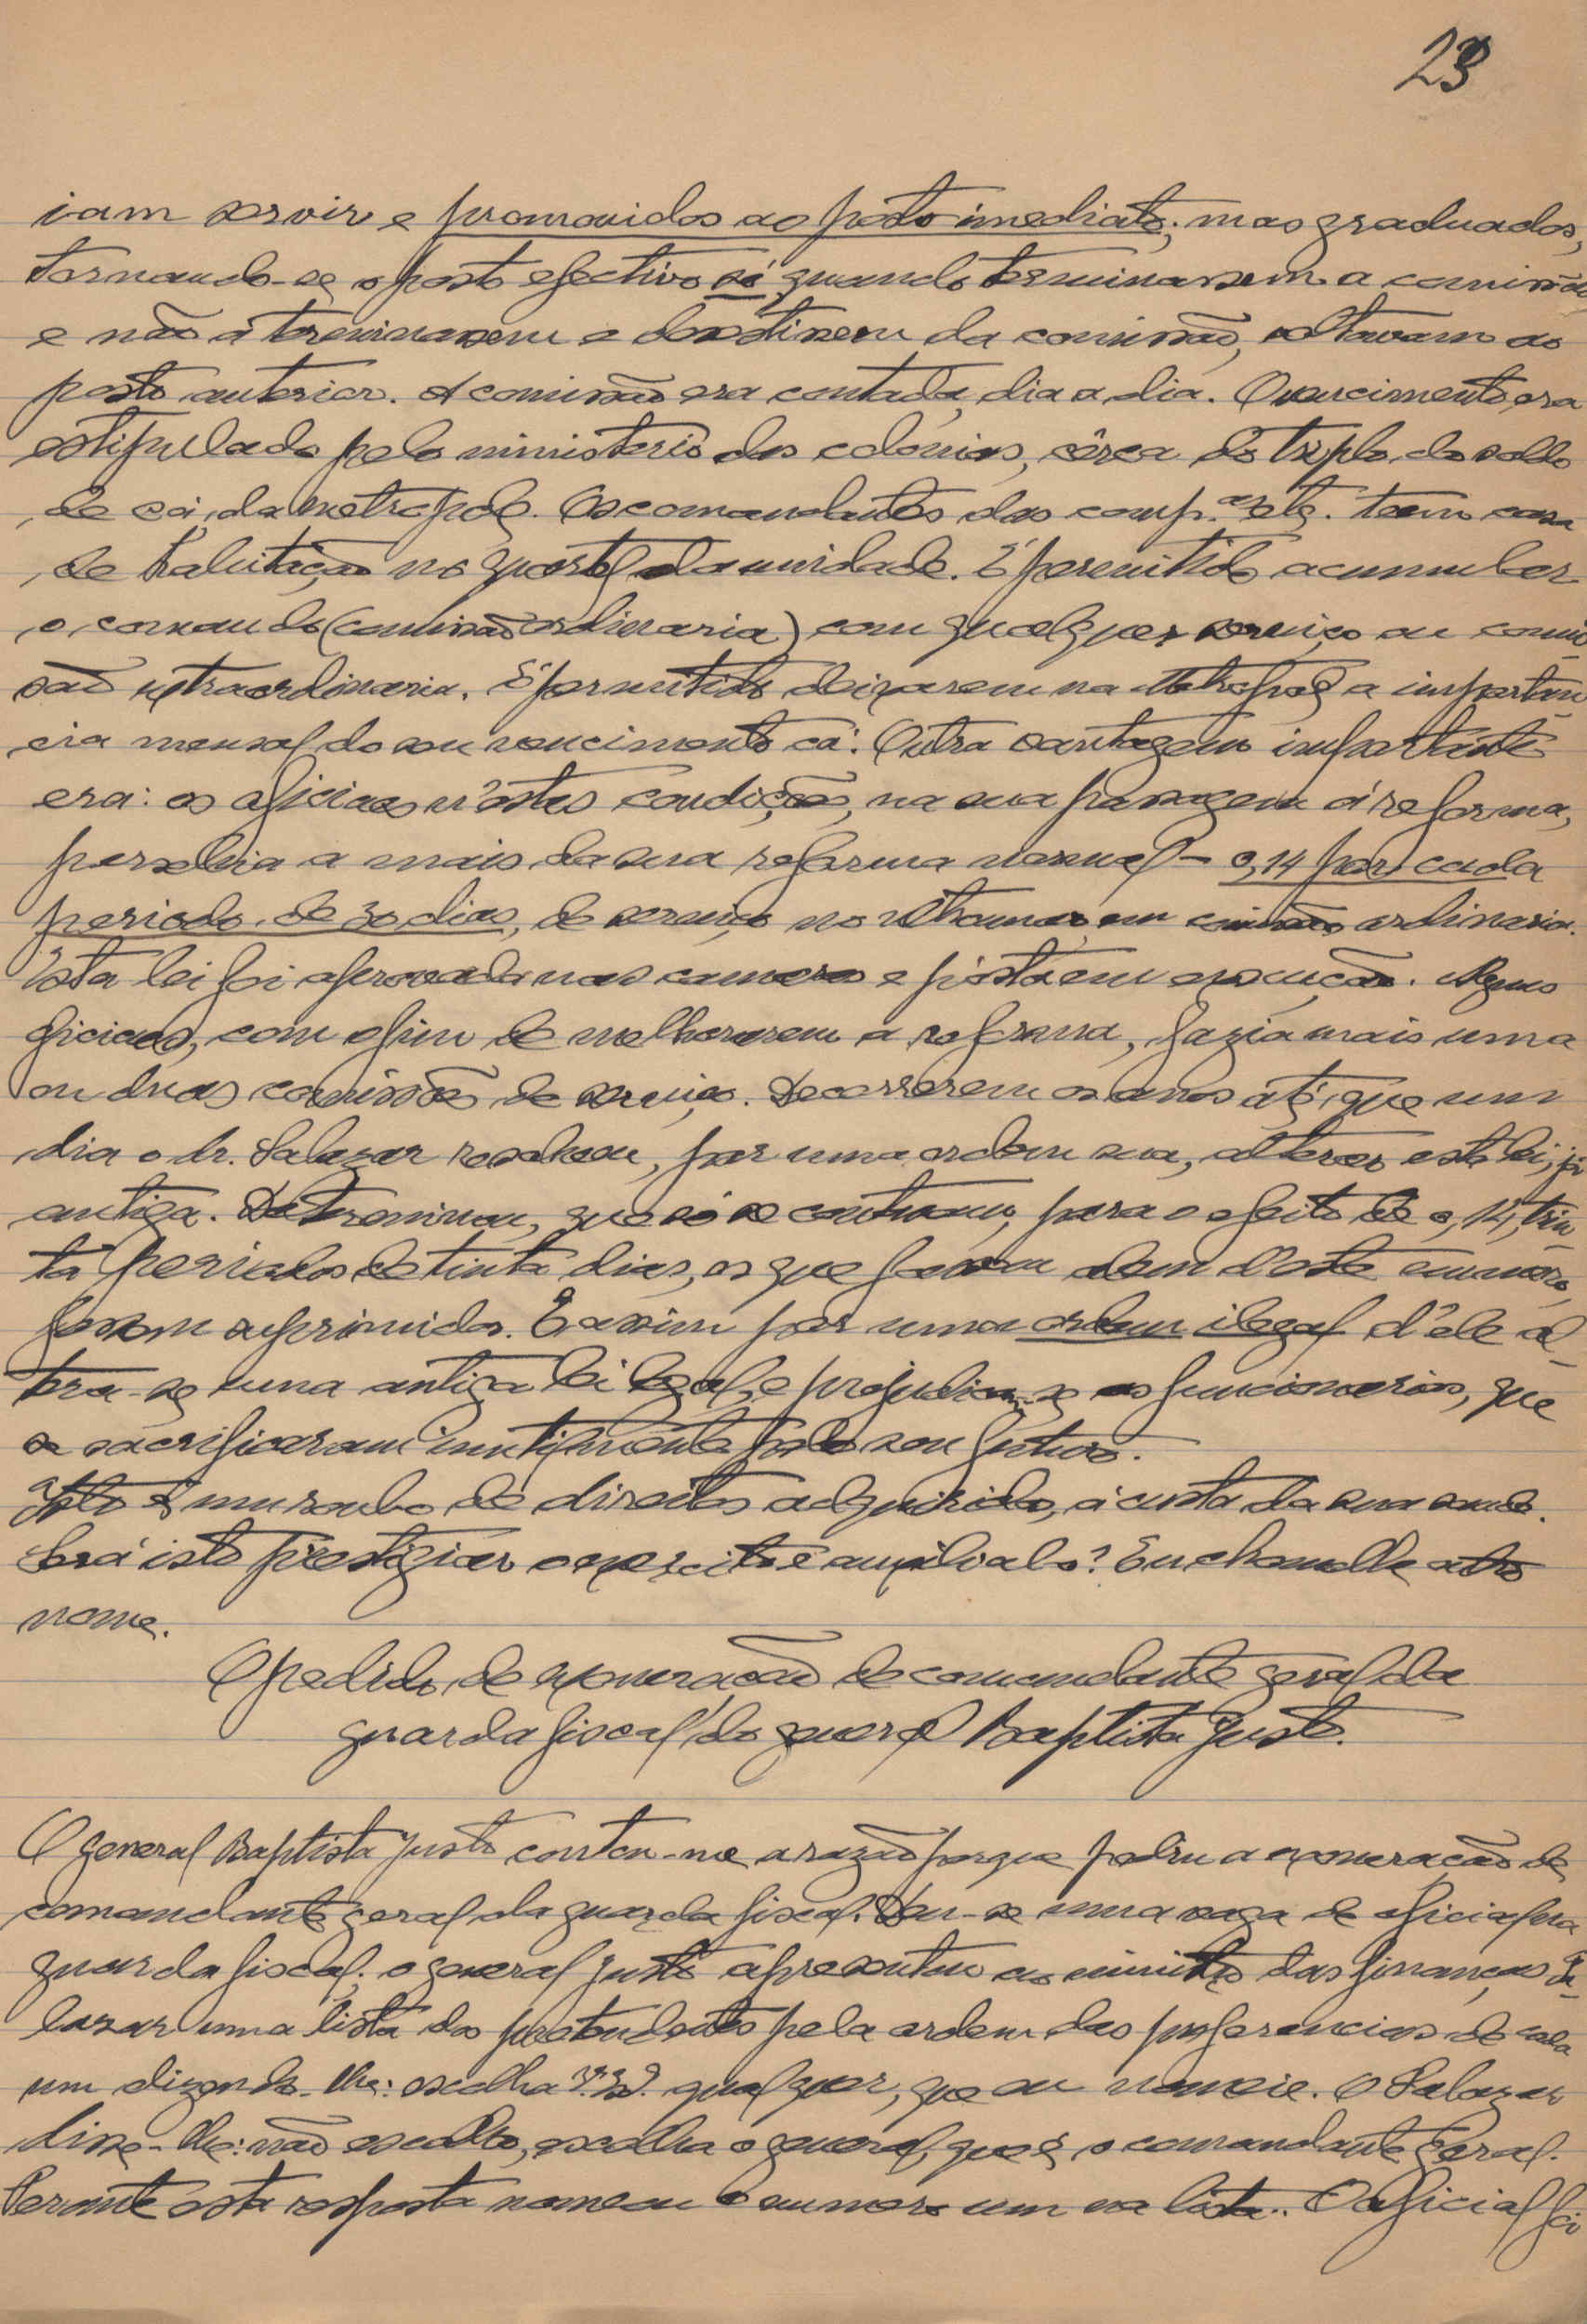 23
iam servir e promovidos ao posto imediato; mas graduados,
tornando-se o posto efectivo só quando terminassem a comissão
e não a terminassem e desistissem da comissão, voltavam ao
posto anterior. A comissão era contada, dia a dia. O vencimento era
estipulado pelo ministerio das colonias, cêrca do triplo do soldo
de cá, da metropole. Os comandantes das comp.as etc. teem casa
de habitação no quartel da unidade. É permitido acumular
o comando (comissão ordinaria) com qualquer serviço ou comis
são extraordinaria. É permitido deixarem na Metropole a importan
cia mensal do seu vencimento cá. Outra vantagem importante
era: os oficiaes n'estas condições, na sua passagem á reforma,
percebia a mais da sua reforma normal – 0,14 por cada
periodo de 30 dias, de serviço no ultramar em comissão ordinaria.
Esta lei foi aprovada nas camaras e pósta em execução. Alguns
oficiaes, com o fim de melhorarem a reforma, fazia mais uma
ou duas comissões de serviço. Decorrerem os anos até que um
dia o dr. Salazar resolveu, por uma ordem sua, alterar esta lei, já
antiga. Determinou, que só se contassem, para o efeito de 0,14, trin
ta periodos de trinta dias, os que fossem alem d'este numero,
fossem suprimidos. E assim por uma ordem ilegal d'ele al-
tera-se uma antiga lei legal, e prejudicam-se os funcionarios, que
se sacrificaram inutilmente pelo seu futuro.
Isto é um roubo de direitos adquiridos, á custa da sua saude.
Será isto prestigiar o exercito e auxilia-lo? Eu chamo-lhe outro
nome.
O pedido de exoneração de comandante geral da
guarda fiscal do general Baptista Justo.
O general Baptista Justo contou-me a razão porque pediu a exoneração de
comandante geral da guarda fiscal. Deu-se uma vaga de oficial na
guarda fiscal; o general Justo apresentou ao ministro das finanças Sa-
lazar uma lista dos pretendentes pela ordem das preferencias de cada
um dizendo-lhe: escolha V. Ex.a qualquer, que eu nomeie. O Salazar
disse-lhe: não escolho, escolha o general, que é o comandante geral.
Perante esta resposta nomeou o numero um na lista. O oficial foi